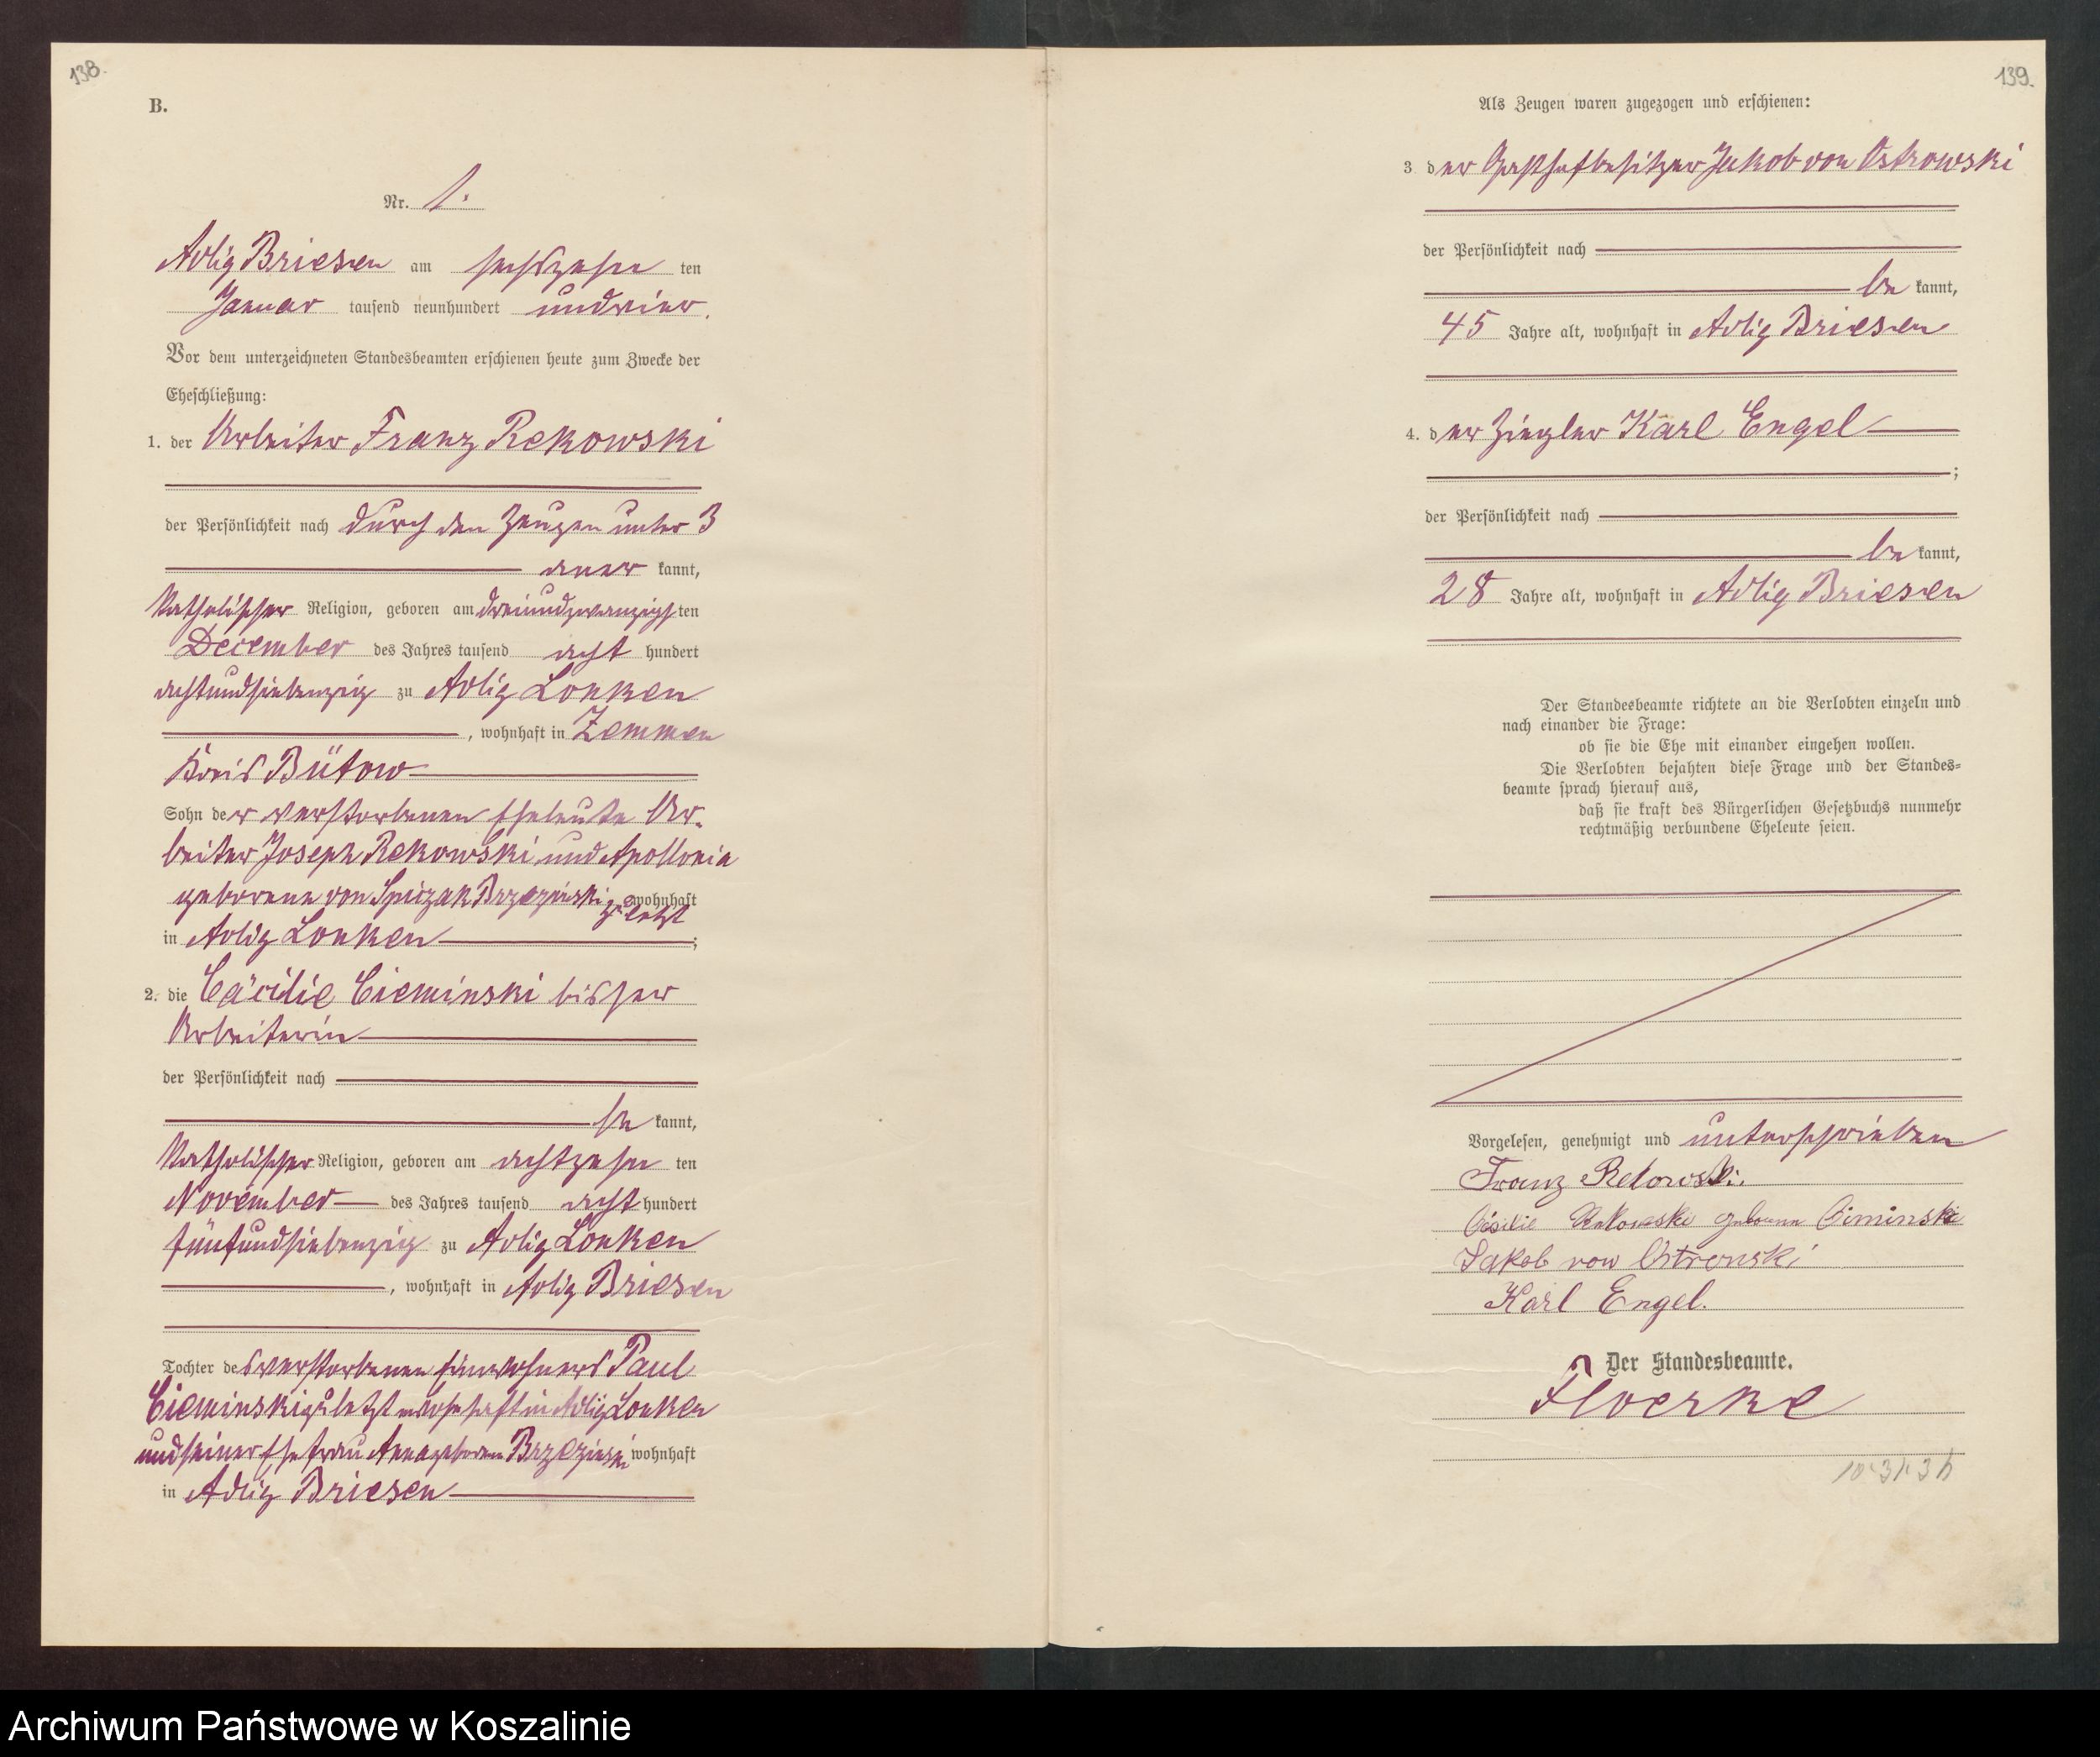 138.
B.
Nr. 1.
Adlig Briesen am sechszehn ten
Januar tausend neunhundert und vier.
Vor dem unterzeichneten Standesbeamten erschienen heute zum Zwecke der
Eheschließung:
1. der Arbeiter Franz Rekowski
der Persönlichkeit nach durch den Zeugen unter 3
aner kannt,
katholischer Religion, geboren am dreiundzwanzigs ten
December des Jahres tausend acht hundert
achtundsiebenzig zu Adlig Lonken
, wohnhaft in Zemmen
Kreis Bütow
Sohn der verstorbenen Eheleute Ar-
beiter Joseph Rekowski und Apollonia
geborene von Spiczak Brzezinski zuletzt wohnhaft
in Adlig Lonken ;
2. die Cäcilie Cieminski bisher
Arbeiterin
der Persönlichkeit nach
be kannt,
katholischer Religion, geboren am achtzehn ten
November des Jahres tausend acht hundert
fünfundsiebenzig zu Adlig Lonken
, wohnhaft in Adlig Briesen
Tochter des verstorbenen Einwohners Paul
Cieminski zuletzt wohnhaft in Adlig Lonken
und seiner Ehefrau Anna geborene Brzezinski wohnhaft
in Adlig Briesen
139.
Als Zeugen waren zugezogen und erschienen:
3. der Gasthofbesitzer Jakob von Ostrowski
der Persönlichkeit nach
be kannt,
45 Jahre alt, wohnhaft in Adlig Briesen
4. der Ziegler Karl Engel
;
der Persönlichkeit nach
be kannt,
28 Jahre alt, wohnhaft in Adlig Briesen
Der Standesbeamte richtete an die Verlobten einzeln und
nach einander die Frage:
ob sie die Ehe mit einander eingehen wollen.
Die Verlobten bejahten diese Frage und der Standes-
beamte sprach hierauf aus,
daß sie kraft des Bürgerlichen Gesetzbuchs nunmehr
rechtmäßig verbundene Eheleute seien.
Vorgelesen, genehmigt und unterschrieben
Franz Rekowski.
Cäsilie Rekowski geborene Ciminski
Jakob von Ostrowski
Karl Engel.
Der Standesbeamte.
Floerke
Archiwum Państwowe w Koszalinie